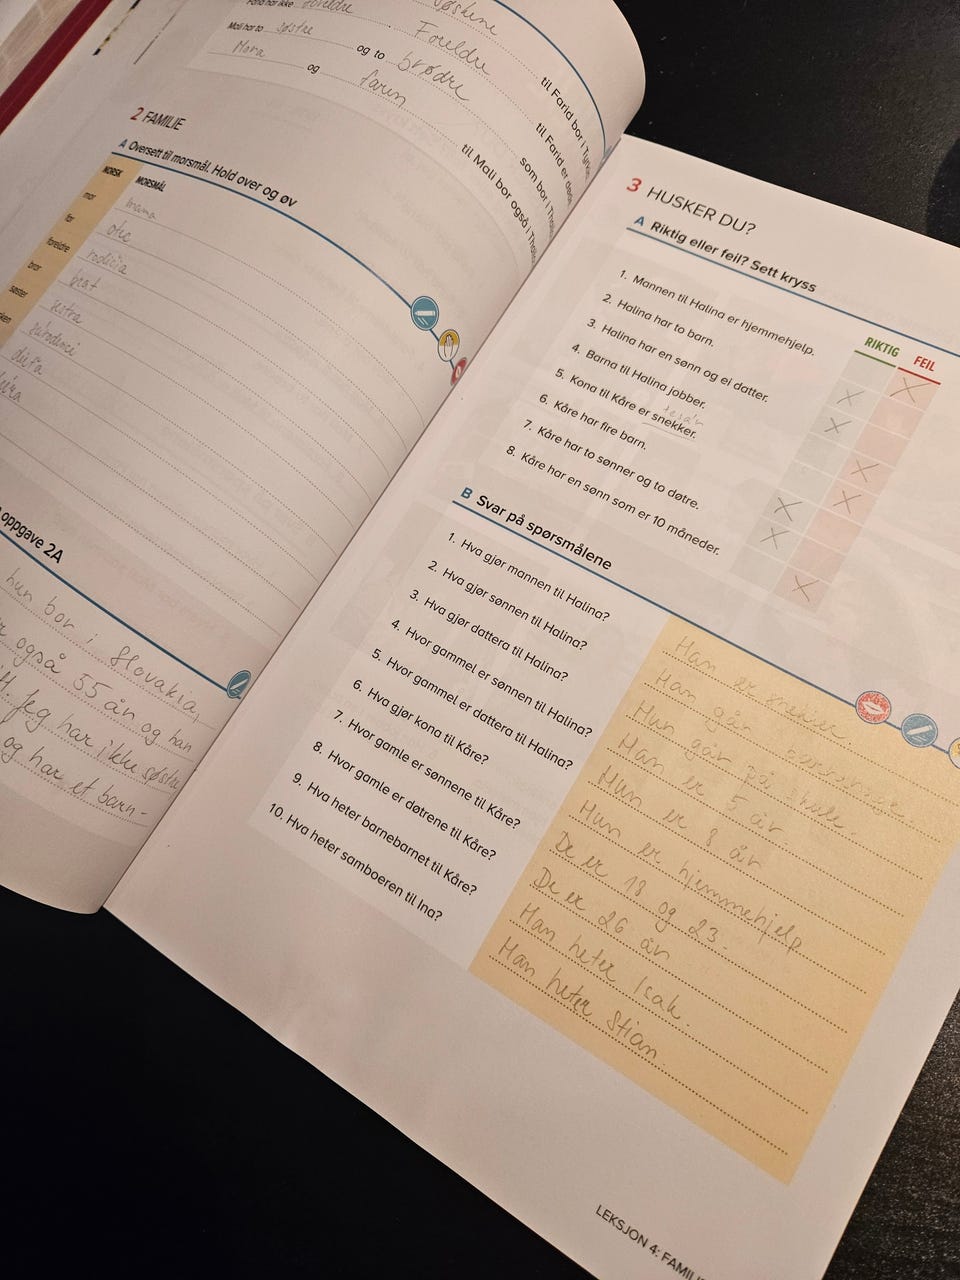 foreldre
søskene
Foreldre
til Farid bor i Tyrkia
Mali har to søstre og to brødre
til Farid er døde.
som bor i Thai
Mora og faren til Mali bor også i Thai
2 FAMILIE
A Oversett til morsmål. Hold over og øv
NORSK MORSMÅL
mor mama
far otec
foreldre rodičia
bror brat
søster sestra
súrodenci
dieťa
oppgave 2A
hun bor i Slovakia,
også 55 år og han
Jeg har ikke søstre
og har et barn -
3 HUSKER DU?
A Riktig eller feil? Sett kryss
RIKTIG FEIL
1. Mannen til Halina er hjemmehjelp.
2. Halina har to barn.
3. Halina har en sønn og ei datter.
4. Barna til Halina jobber.
tesár
5. Kona til Kåre er snekker.
6. Kåre har fire barn.
7. Kåre har to sønner og to døtre.
8. Kåre har en sønn som er 10 måneder.
B Svar på spørsmålene
1. Hva gjør mannen til Halina? Han er snekker.
2. Hva gjør sønnen til Halina? Han går barnehage.
3. Hva gjør dattera til Halina? Hun går på skule.
4. Hvor gammel er sønnen til Halina? Han er 5 år
5. Hvor gammel er dattera til Halina? Hun er 8 år
6. Hva gjør kona til Kåre? Hun er hjemmehjelp
7. Hvor gamle er sønnene til Kåre? De er 18 og 23.
8. Hvor gamle er døtrene til Kåre? De er 26 år
9. Hva heter barnebarnet til Kåre? Han heter Isak.
10. Hva heter samboeren til Ina? Han heter Stian
LEKSJON 4: FAMILI